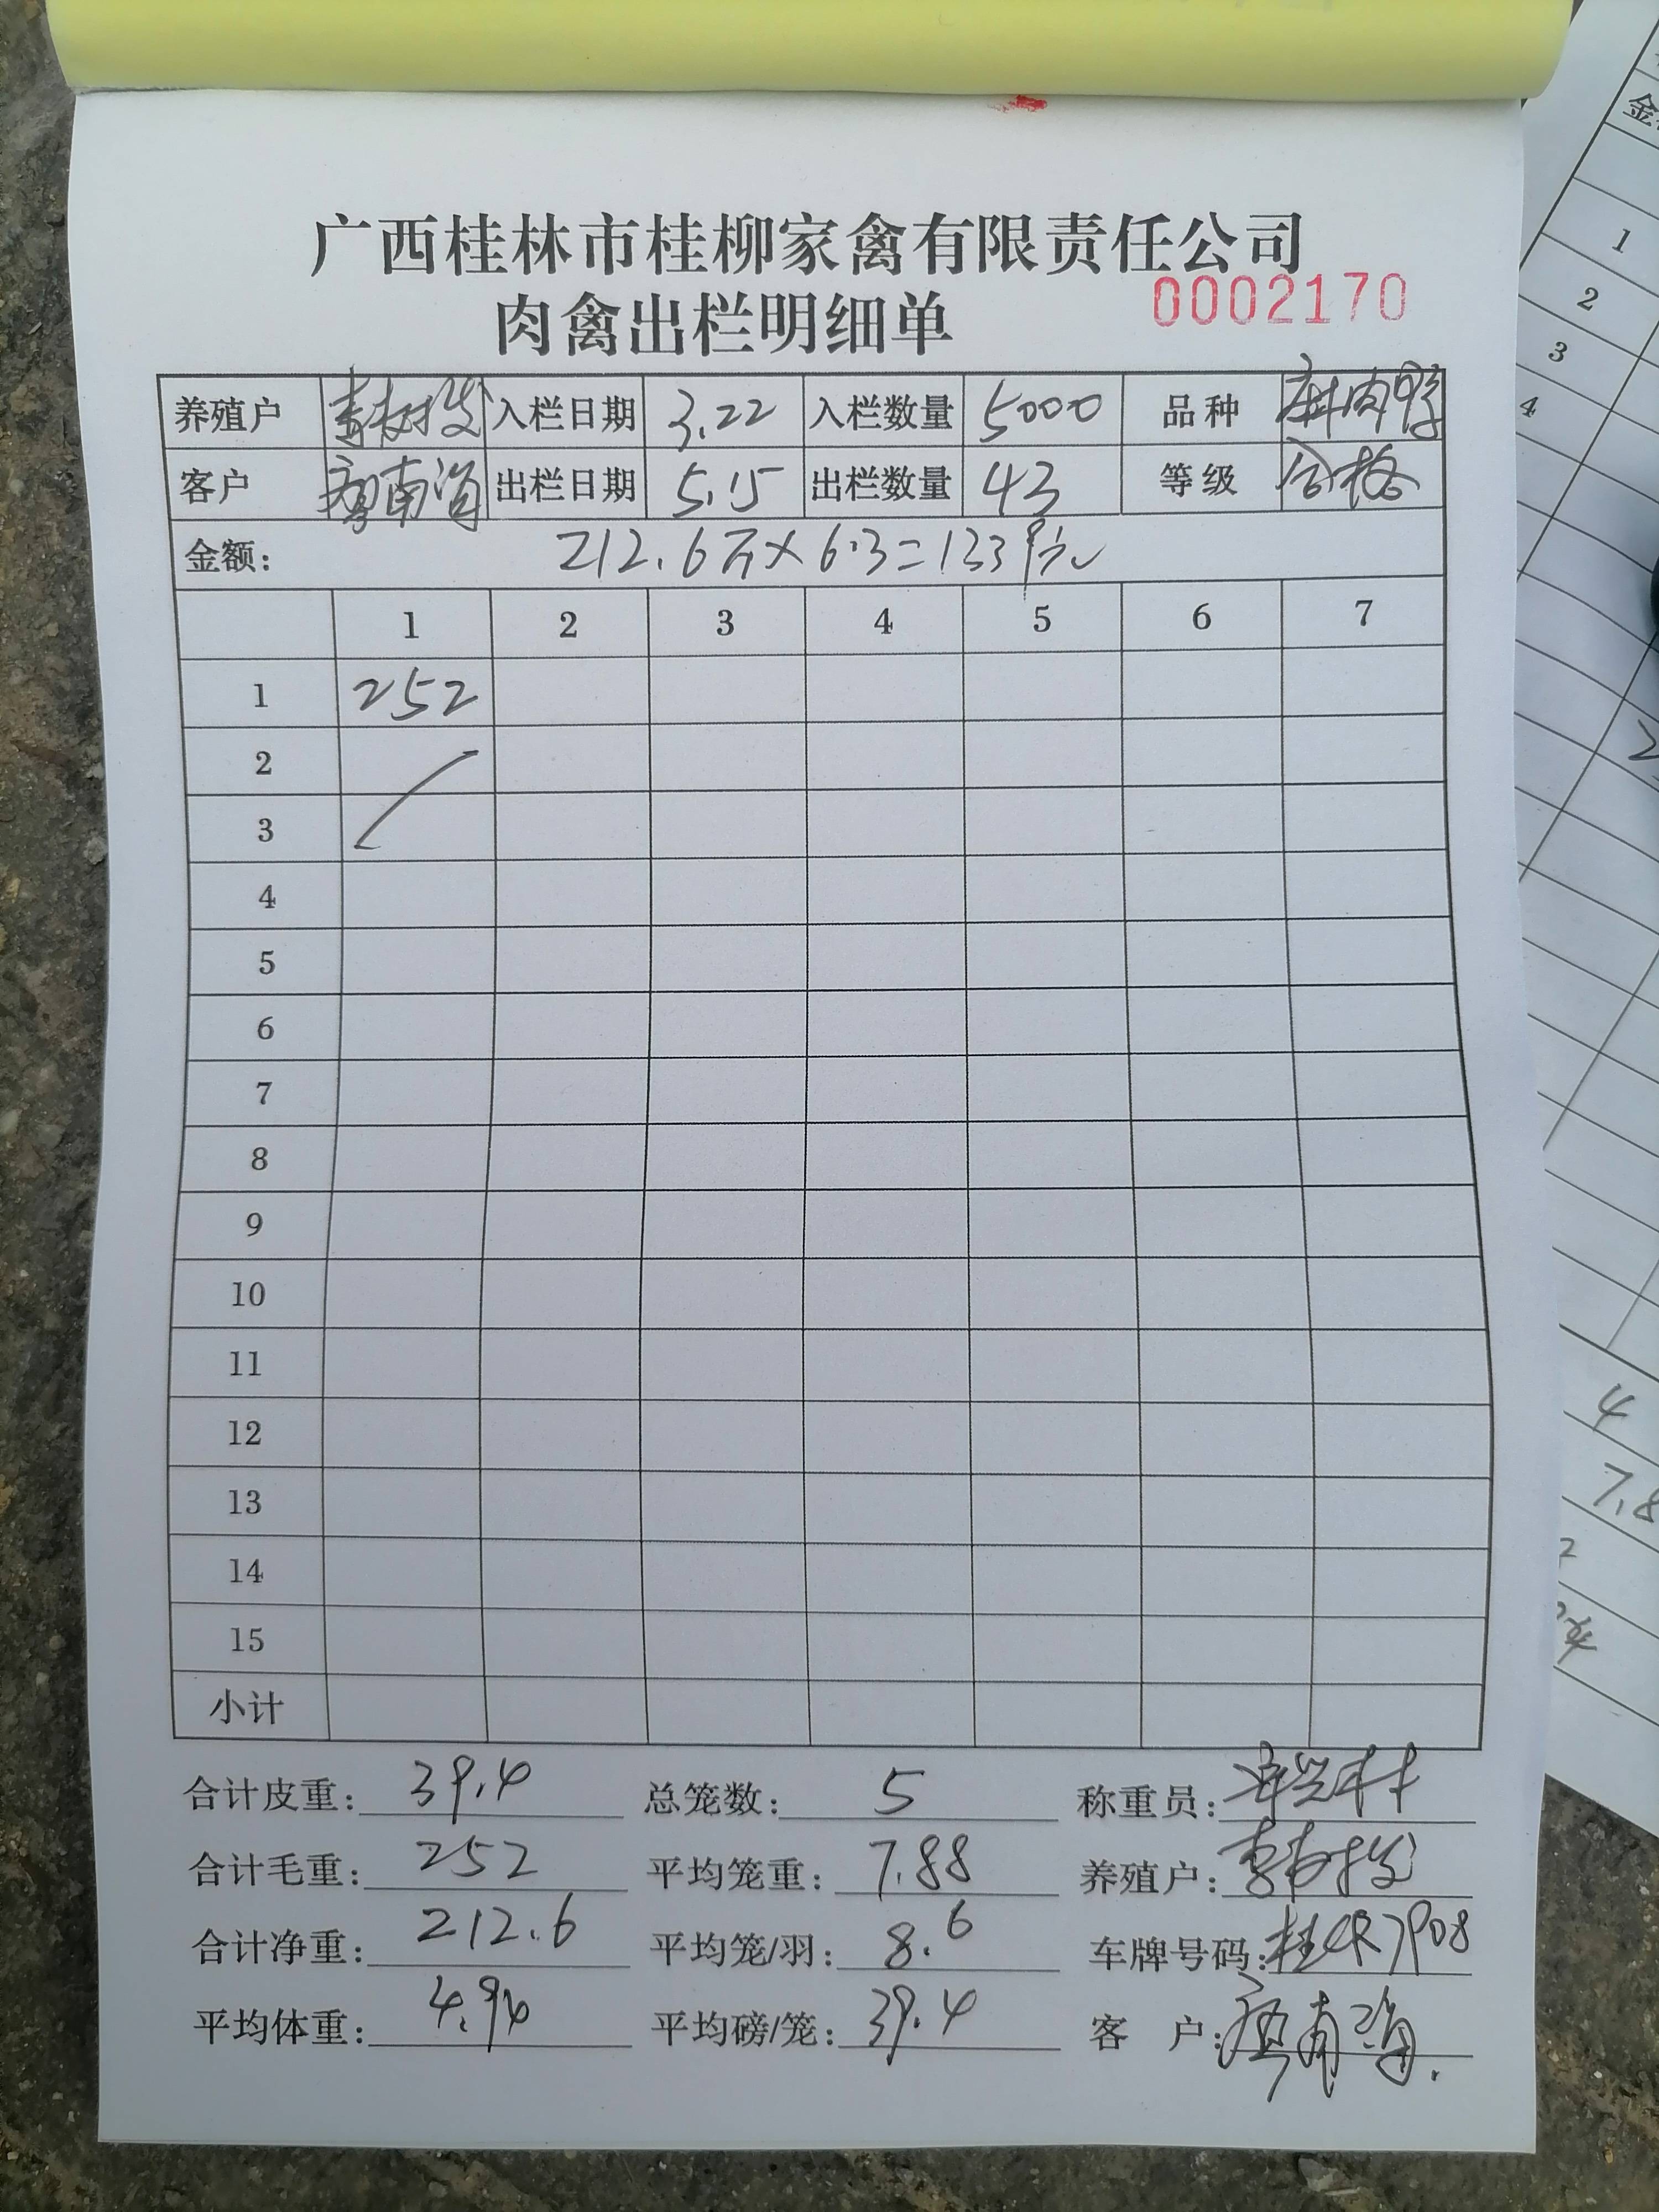 广西桂林市桂柳家禽有限责任公司
肉禽出栏明细单 0002170
养殖户 入栏日期 3.22 入栏数量 5000 品种 麻肉鸭
客户 出栏日期 5.15 出栏数量 43 等级 合格
金额: 212.6斤×6.3=1339元
1 2 3 4 5 6 7
1 252
2
3
4
5
6
7
8
9
10
11
12
13
14
15
小计
合计皮重: 39.4 总笼数: 5 称重员:
合计毛重: 252 平均笼重: 7.88 养殖户:
合计净重: 212.6 平均笼/羽: 8.6 车牌号码:
平均体重: 4.94 平均磅/笼: 39.4 客 户:
金
1
2
3
4
4
7.8